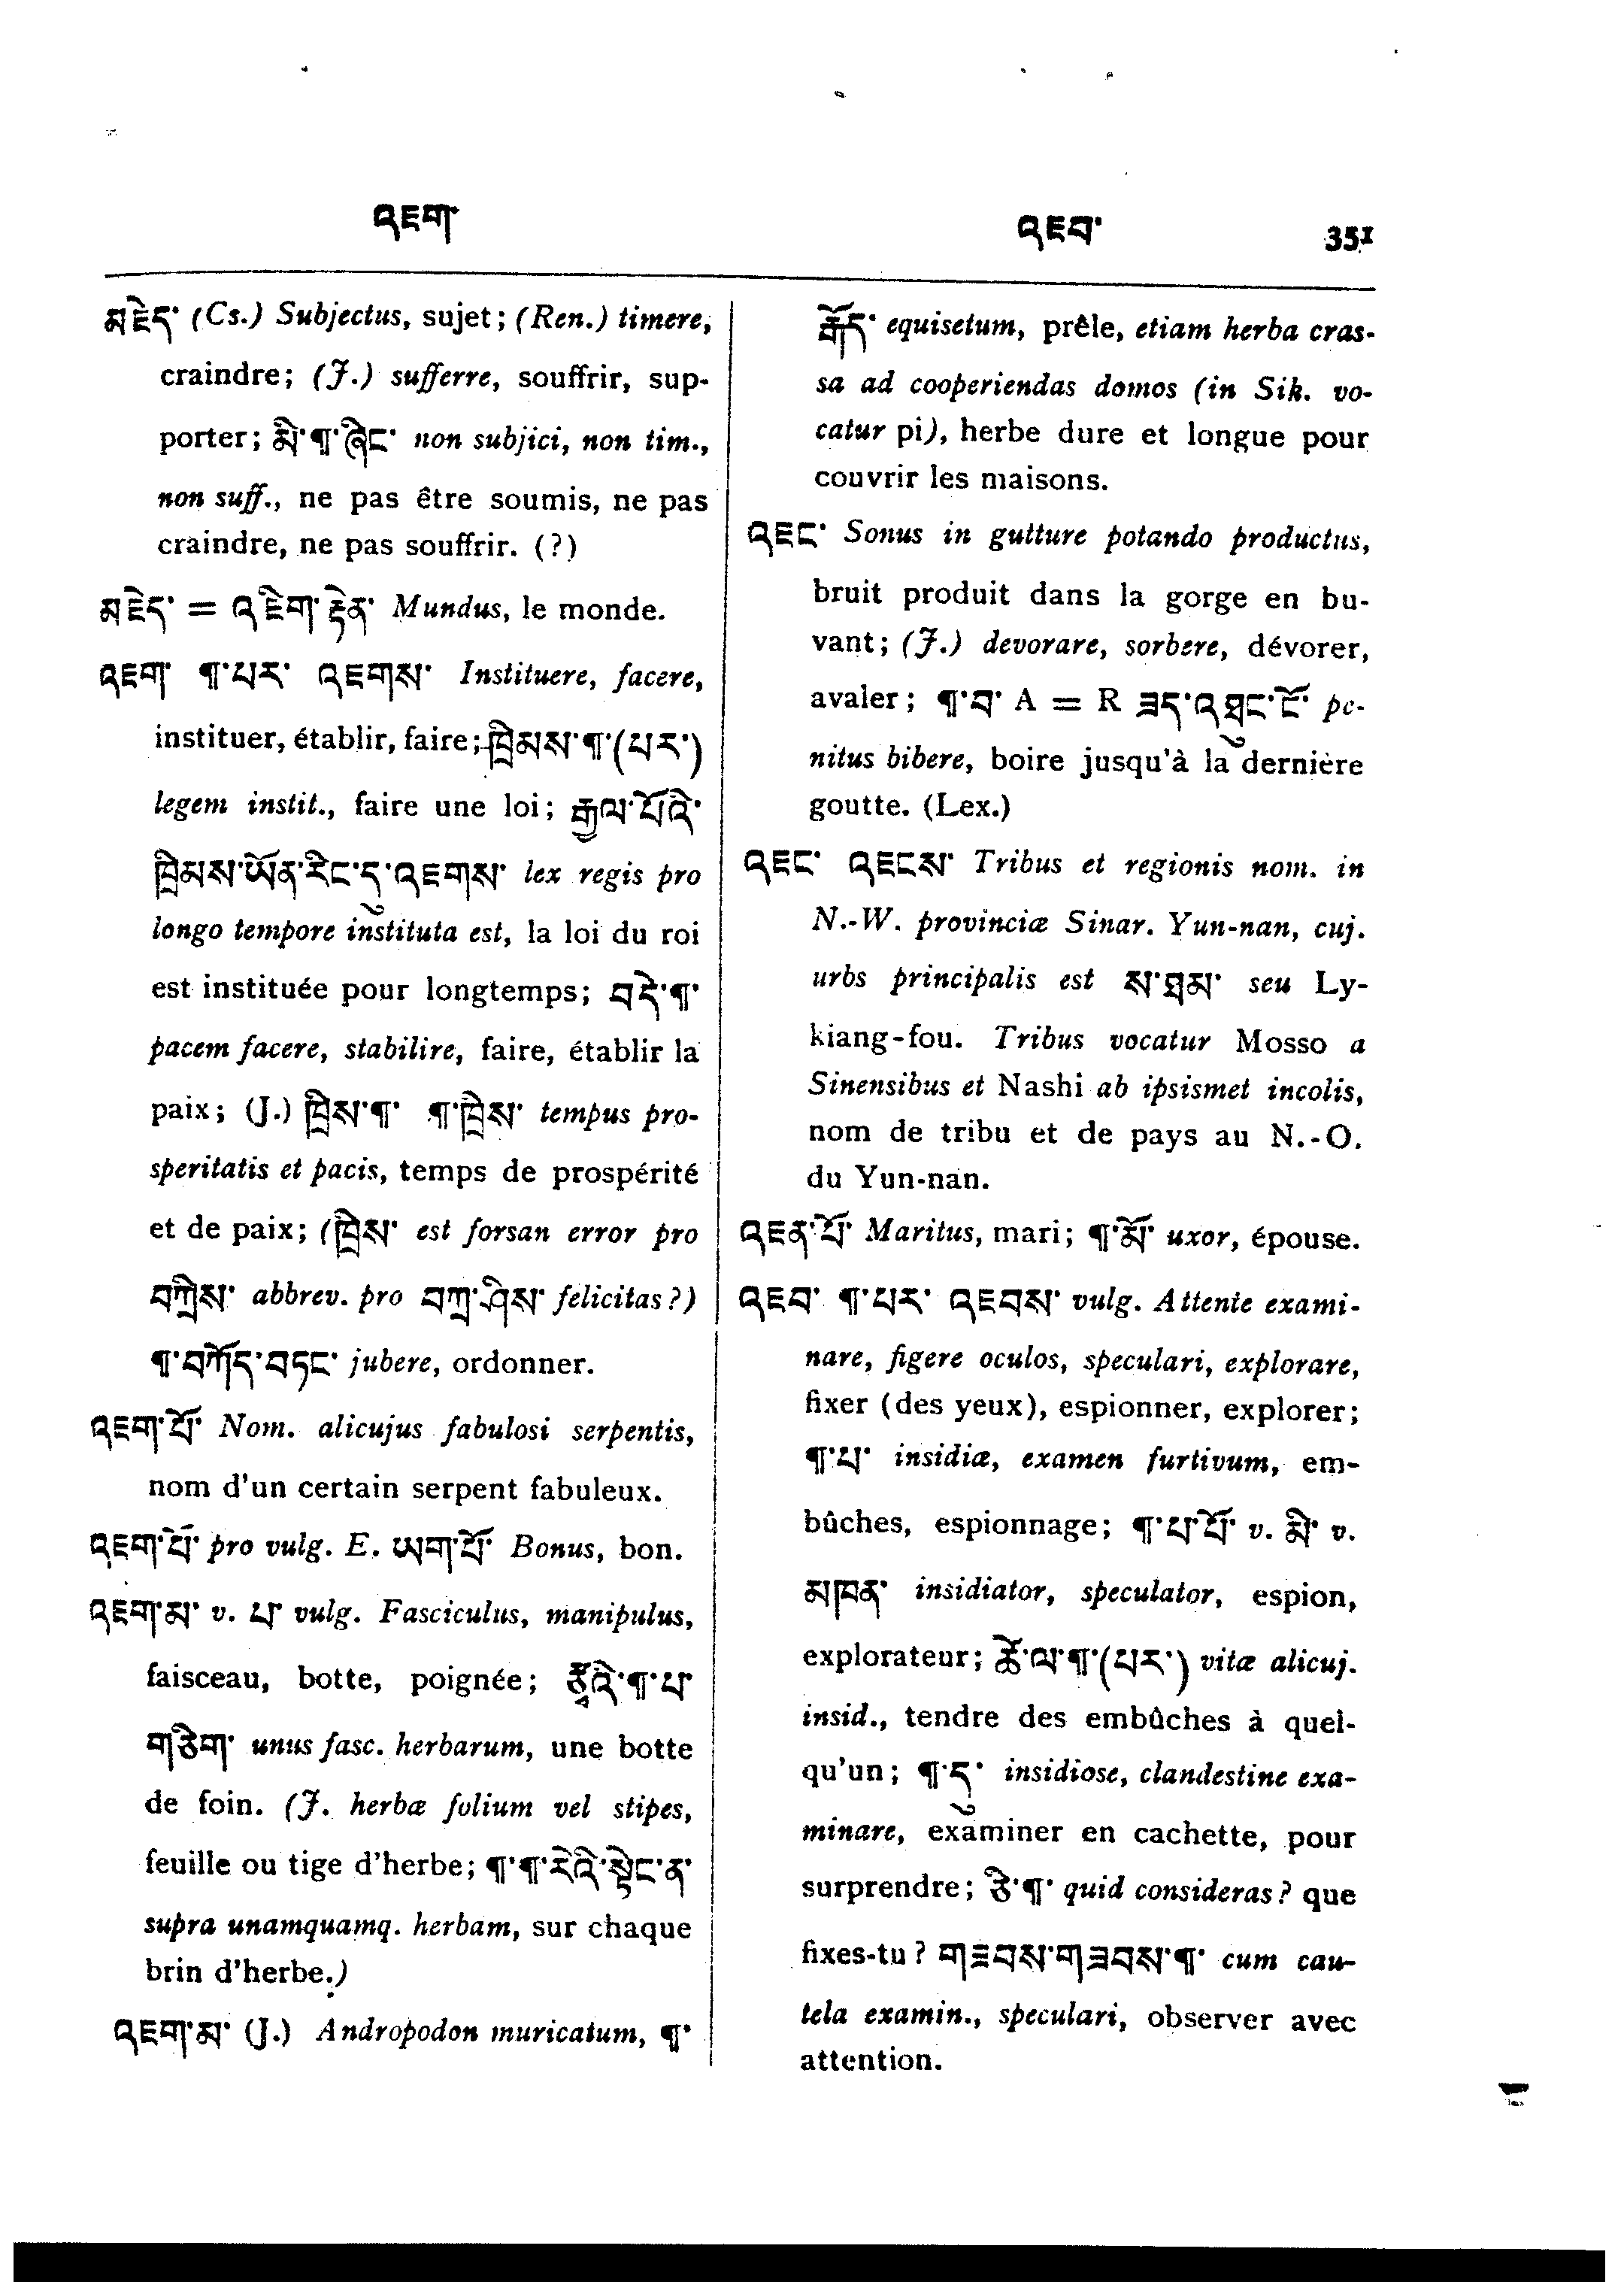 འཇག་
འཇབ་ 351
མཇེད་ (Cs.) Subjectus, sujet; (Ren.) timere,
craindre; (J.) sufferre, souffrir, sup-
porter; མི་¶་ཞིང་ non subjici, non tim.,
non suff., ne pas être soumis, ne pas
craindre, ne pas souffrir. (?)
མཇེད་ = འཇིག་རྟེན་ Mundus, le monde.
འཇག་ ¶་པར་ འཇགས་ Instituere, facere,
instituer, établir, faire; ཁྲིམས་¶་(པར་)
legem instit., faire une loi; རྒྱལ་པོའི་
ཁྲིམས་ཡོན་རིང་དུ་འཇགས་ lex regis pro
longo tempore instituta est, la loi du roi
est instituée pour longtemps; བདེ་¶་
pacem facere, stabilire, faire, établir la
paix; (J.) ཁྲིས་¶་ ¶་ཁྲིས་ tempus pro-
speritatis et pacis, temps de prospérité
et de paix; (ཁྲིས་ est forsan error pro
བཀྲིས་ abbrev. pro བཀྲ་ཤིས་ felicitas?)
¶་བཀོད་བཏང་ jubere, ordonner.
འཇག་པོ་ Nom. alicujus fabulosi serpentis,
nom d'un certain serpent fabuleux.
འཇག་པོ་ pro vulg. E. ཡག་པོ་ Bonus, bon.
འཇག་མ་ v. པ་ vulg. Fasciculus, manipulus,
faisceau, botte, poignée; རྩྭའི་¶་པ་
གཅིག་ unus fasc. herbarum, une botte
de foin. (J. herbæ folium vel stipes,
feuille ou tige d'herbe; ¶་¶་རེའི་སྟེང་ན་
supra unamquamq. herbam, sur chaque
brin d'herbe.)
འཇག་མ་ (J.) Andropodon muricatum, ¶་
རྒོད་ equisetum, prêle, etiam herba cras-
sa ad cooperiendas domos (in Sik. vo-
catur pi), herbe dure et longue pour
couvrir les maisons.
འཇང་ Sonus in gutture potando productus,
bruit produit dans la gorge en bu-
vant; (J.) devorare, sorbere, dévorer,
avaler; ¶་བ་ A = R ཟད་འཐུང་ངོ་ pe-
nitus bibere, boire jusqu'à la dernière
goutte. (Lex.)
འཇང་ འཇངས་ Tribus et regionis nom. in
N.-W. provinciæ Sinar. Yun-nan, cuj.
urbs principalis est ས་ཐམ་ seu Ly-
kiang-fou. Tribus vocatur Mosso a
Sinensibus et Nashi ab ipsismet incolis,
nom de tribu et de pays au N.-O.
du Yun-nan.
འཇན་པོ་ Maritus, mari; ¶་མོ་ uxor, épouse.
འཇབ་ ¶་པར་ འཇབས་ vulg. Attente exami-
nare, figere oculos, speculari, explorare,
fixer (des yeux), espionner, explorer;
¶་པ་ insidiæ, examen furtivum, em-
bûches, espionnage; ¶་པ་པོ་ v. མི་ v.
མཁན་ insidiator, speculator, espion,
explorateur; ཚེ་ལ་¶་(པར་) vitæ alicuj.
insid., tendre des embûches à quel-
qu'un; ¶་དུ་ insidiose, clandestine exa-
minare, examiner en cachette, pour
surprendre; ཅི་¶་ quid consideras? que
fixes-tu? གཇབས་གཟབས་¶་ cum cau-
tela examin., speculari, observer avec
attention.